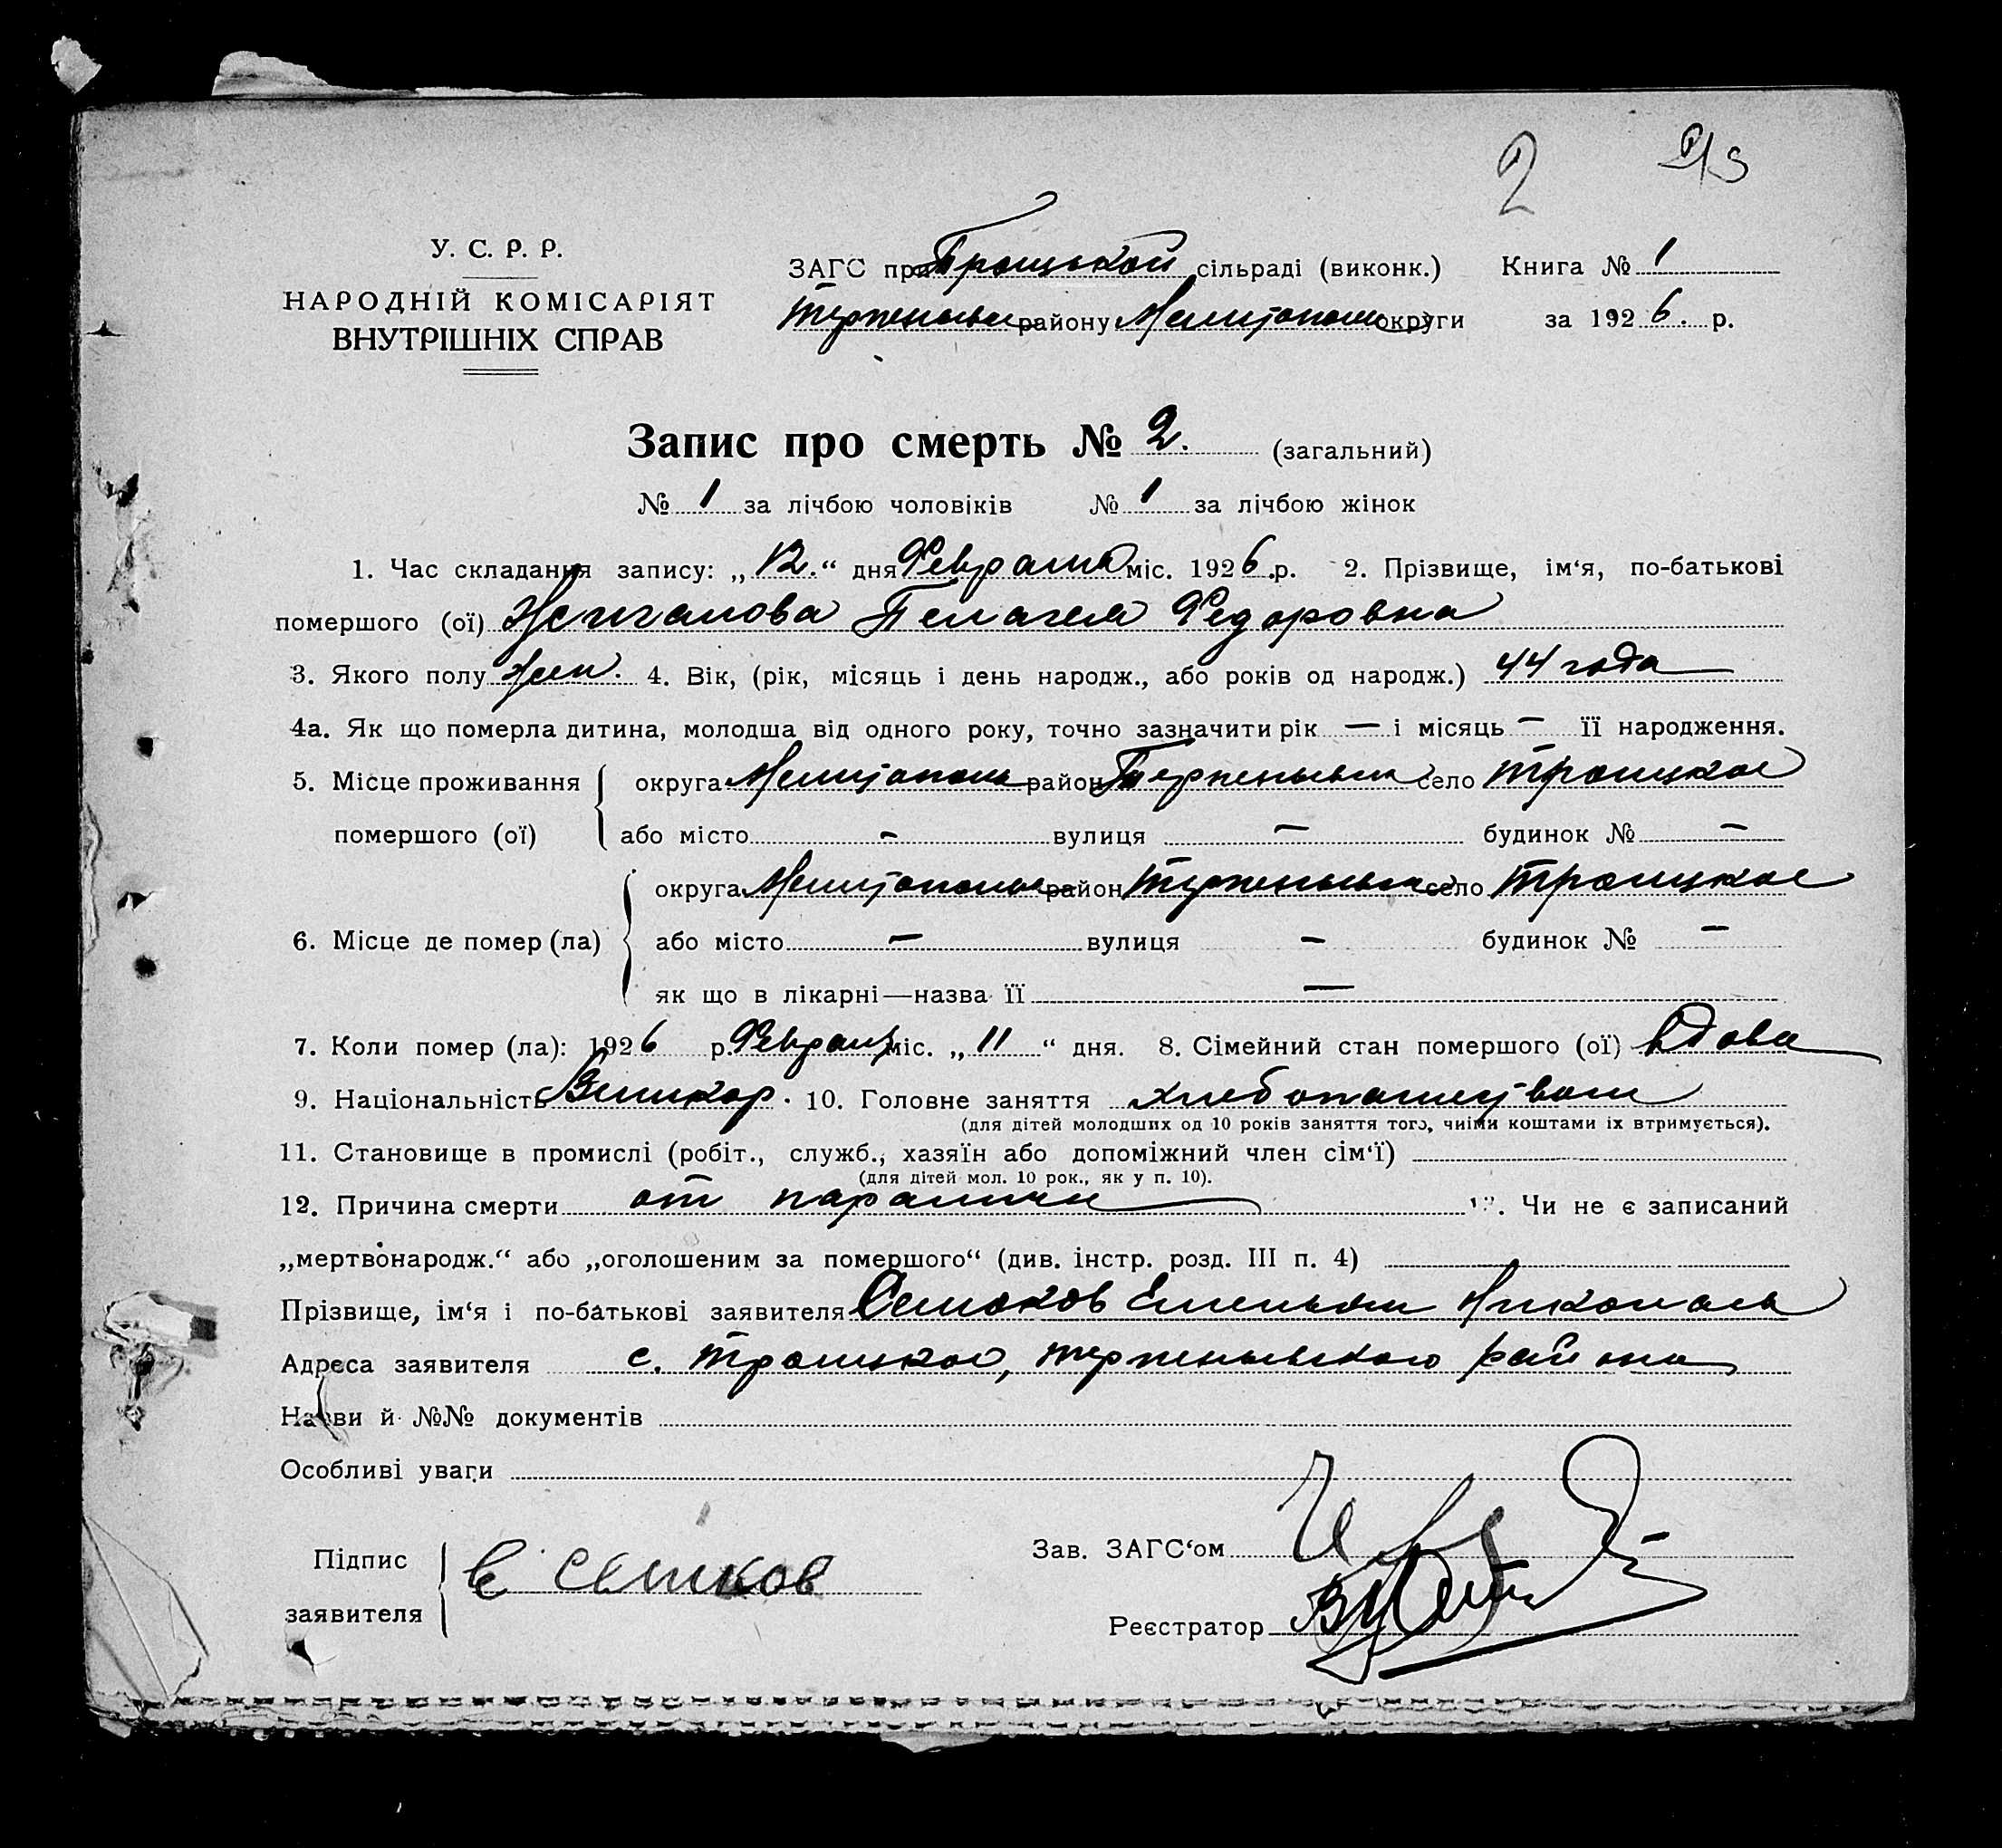 2 2/3
У. С. Р. Р.
НАРОДНІЙ КОМІСАРІЯТ
ВНУТРІШНІХ СПРАВ
ЗАГС при Троицькой сільраді (виконк.) Книга № 1
району Мелитополь округи за 1926. р.
Запис про смерть № 2. (загальний)
№ 1 за лічбою чоловіків № 1 за лічбою жінок
1. Час складання запису: „12.“ дня Февраля міс. 1926 р. 2. Прізвище, ім‘я, по-батькові
помершого (ої) Пелагея Федоровна
3. Якого полу жен. 4. Вік, (рік, місяць і день народж., або років од народж.) 44 года
4а. Як що померла дитина, молодша від одного року, точно зазначити рік — і місяць — її народження.
5. Місце проживання округа Мелитополь район село Троицкое
помершого (ої) або місто — вулиця — будинок № —
округа район село Троицкое
6. Місце де помер (ла) або місто — вулиця — будинок № —
як що в лікарні—назва її —
7. Коли помер (ла): 1926 р. міс. „11“ дня. 8. Сімейний стан помершого (ої) вдова
9. Національність Великор. 10. Головне заняття хлебопашеством
(для дітей молодших од 10 років заняття того, чиїми коштами їх втримується).
11. Становище в промислі (робіт., служб., хазяїн або допоміжний член сім‘ї)
(для дітей мол. 10 рок., як у п. 10).
12. Причина смерти от паралича 13. Чи не є записаний
„мертвонародж.“ або „оголошеним за помершого“ (див. інстр. розд. III п. 4)
Прізвище, ім‘я і по-батькові заявителя
Адреса заявителя с. Троицкое, района
Назви й №№ документів
Особливі уваги
Підпис
заявителя Е
Зав. ЗАГС‘ом
Реєстратор